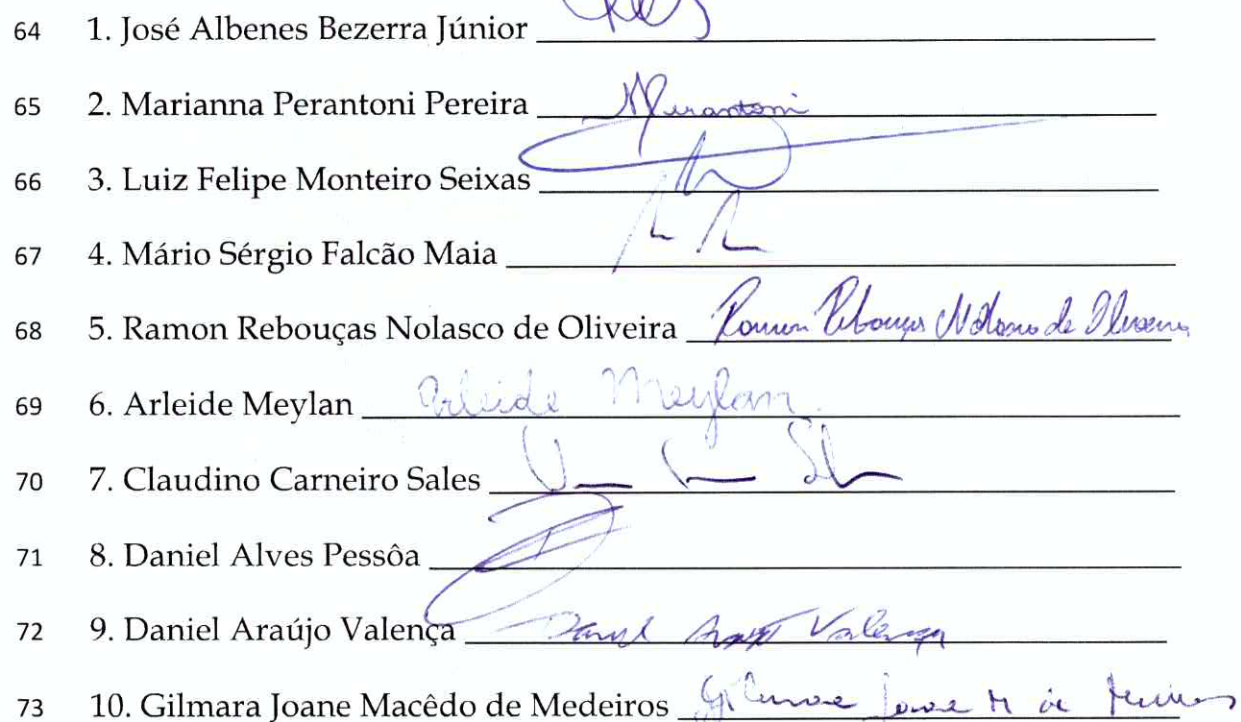 64 1. José Albenes Bezerra Júnior
65 2. Marianna Perantoni Pereira MPerantoni
66 3. Luiz Felipe Monteiro Seixas
67 4. Mário Sérgio Falcão Maia
68 5. Ramon Rebouças Nolasco de Oliveira Ramon Rebouças Nolasco de Oliveira
69 6. Arleide Meylan Arleide Meylan
70 7. Claudino Carneiro Sales
71 8. Daniel Alves Pessôa
72 9. Daniel Araújo Valença Daniel Araújo Valença
73 10. Gilmara Joane Macêdo de Medeiros Gilmara Joane M de Medeiros